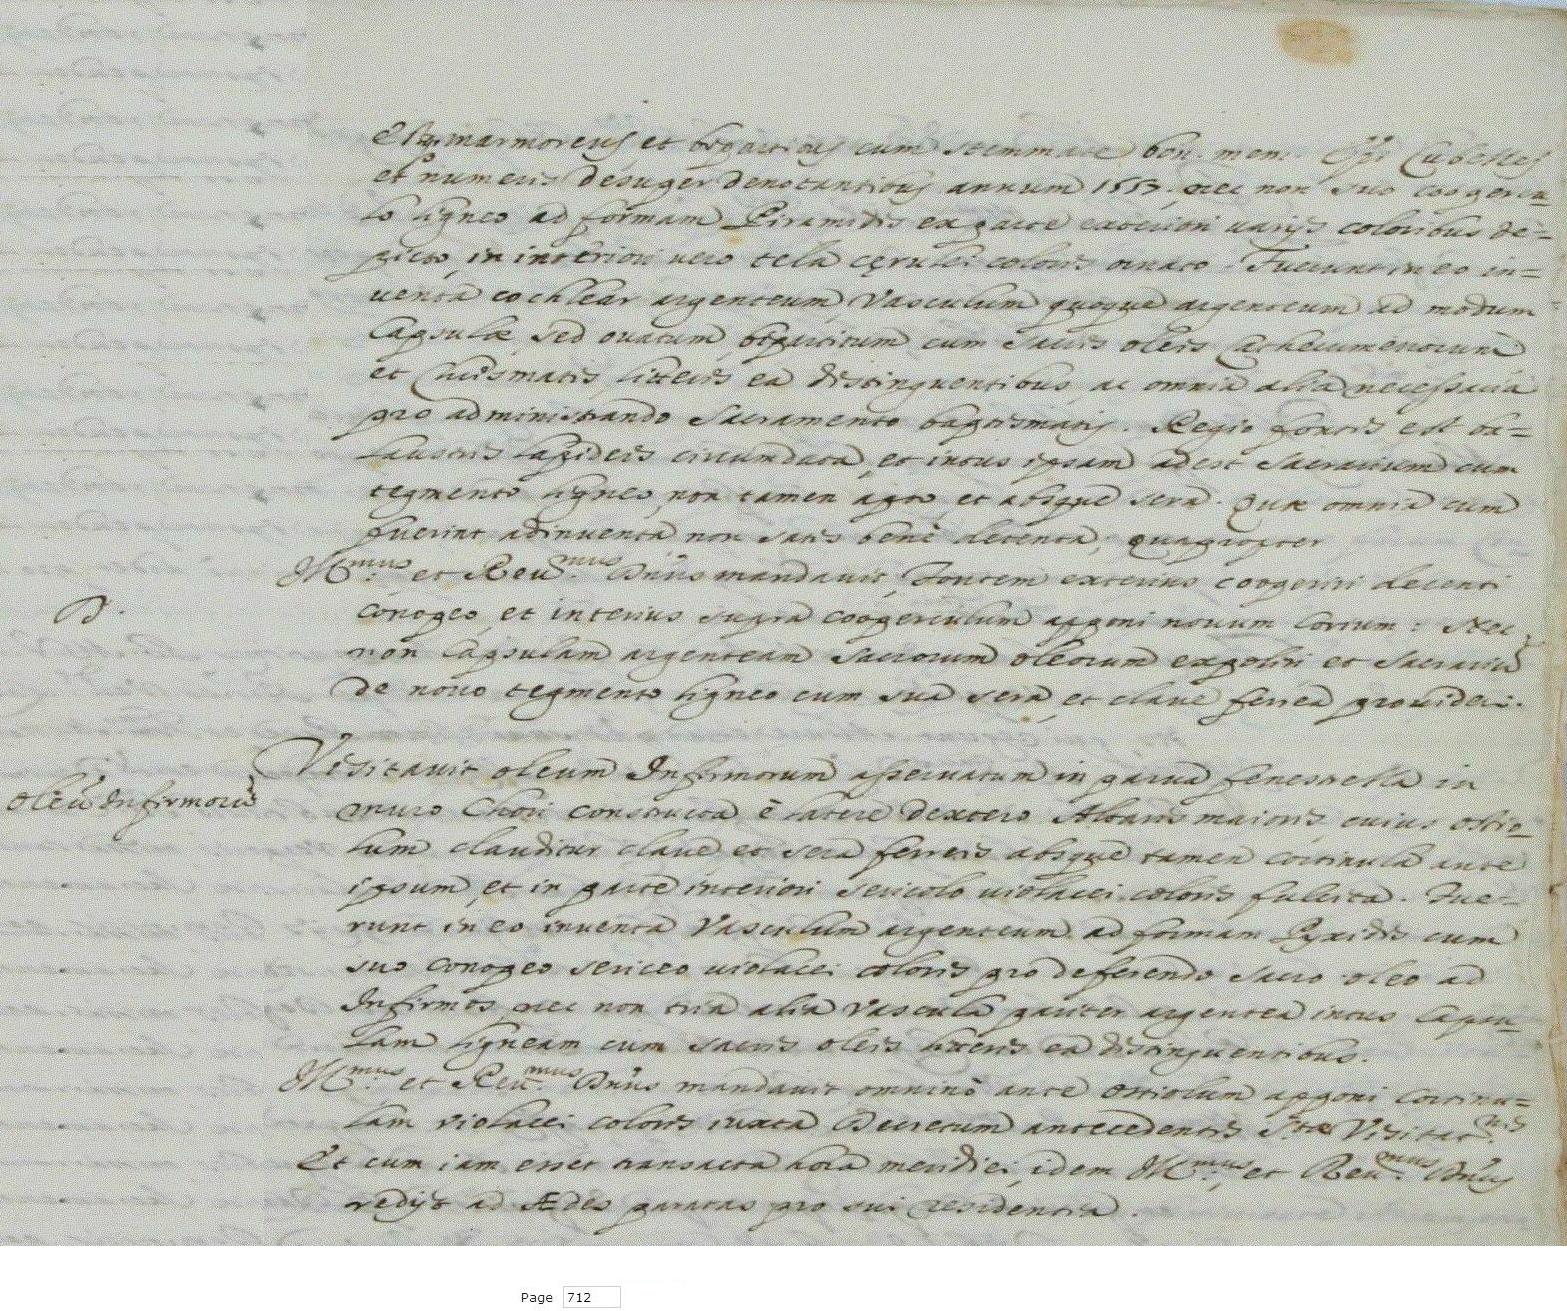 Est marmoreus et bipartitus cum stemmate bon: mem: Epi Cubelles
et numeris desuper denotantibus annum 1557. nec non suo coopercu
lo ligneo ad formam Piramidis ex parte exteriori varijs coloribus de=
picto, in interiori vero tela cęrulei coloris ornato. Fuerunt in eo in=
uenta cochlear argenteum, Vasculum quoque argenteum ad modum
Capsulæ, sed ouatum, bipartitum, cum Sacris oleis Cathecumenorum
et Chrismatis, litteris ea distinguentibus, ac omnia alia necessaria
pro administrando Sacramento baptismatis. Regio fontis est ba=
laustris lapideis circumdata, et intus ipsam adest Sacrarium cum
tegmento ligneo, non tamen apto, et absque sera. Quæ omnia cum
fuerint adinuenta non satis benè detenta, quapropter
Illmus. et Reumus. Dñus mandauit, Fontem exterius cooperiri decenti
conopeo, et interius supra cooperculum apponi nouum Corium: Nec
non Capsulam argenteam Sacrorum oleorum expoliri et Sacrariũ
de nouo tegmento ligneo cum sua sera, et claue ferrea prouideri.
D.
Visitauit oleum Infirmorum asseruatum in parua fenestrella in
oleũ Infirmorũ
muro Chori constructa è latere dextero Altaris maioris, cuius ostio=
lum clauditur claue, et sera ferreis absque tamen cortinula ante
ipsum, et in parte interiori sericolo uiolacei coloris fulcita. Fue=
runt in eo inuenta Vasculum argenteum ad formam Pyxidis cum
suo conopeo sericeo uiolacei coloris pro deferendo sacro oleo ad
Infirmos, nec non tria alia Vascula pariter argentea intus Capsu=
lam ligneam cum sacris oleis literis ea distinguentibus.
Illmus. et Reumus. Dñus mandauit omninò ante Ostiolum apponi Cortinu=
lam violacei coloris iuxta Decretum antecedentis Stæ Visitatnis.
Et cum iam esset transacta hora meridiei, idem Illmus. et Reumus. Dñus
redijt ad Ædes paratas pro sui residentia.
Page 712